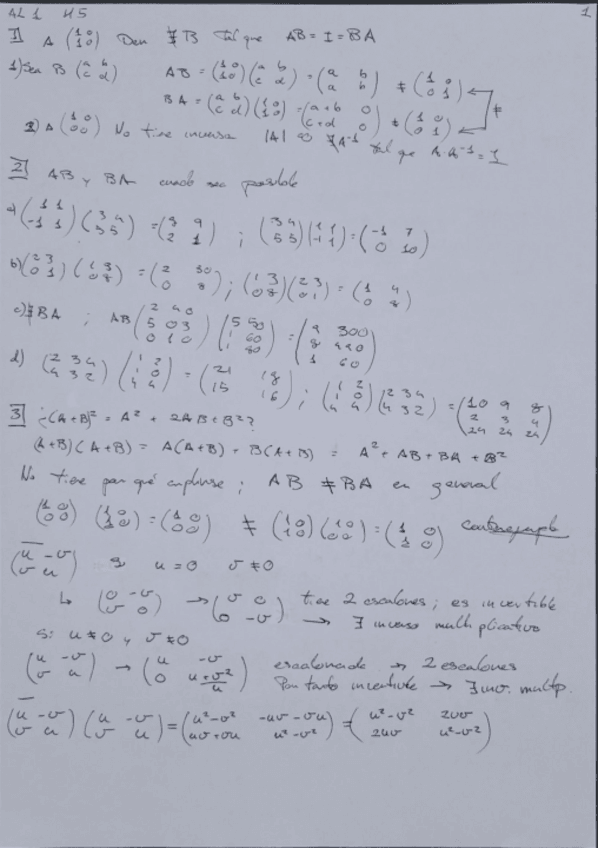 AL 1 H5 1
1 A (1 0 / 1 0) Dem ∄ B tal que AB = I = BA
1) Sea B (a b / c d) AB = (1 0 / 1 0)(a b / c d) = (a b / a b) ≠ (1 0 / 0 1)
BA = (a b / c d)(1 0 / 1 0) = (a+b 0 / c+d 0) ≠ (1 0 / 0 1) ≠
2) A (1 0 / 0 0) No tiene inversa |A| = 0 ∄ A⁻¹ tal que A·A⁻¹ = I
2 AB y BA cuando sea posible
a) (1 1 / -1 1)(3 4 / 5 5) = (8 9 / 2 1) ; (3 4 / 5 5)(1 1 / -1 1) = (-1 7 / 0 10)
b) (2 3 / 0 1)(1 3 / 0 8) = (2 30 / 0 8) ; (1 3 / 0 8)(2 3 / 0 1) = (1 4 / 0 8)
c) ∄ BA ; AB (2 4 0 / 5 0 3 / 0 1 0)(5 50 / 1 60 / 80) = (300 / 8 490 / 1 60)
d) (2 3 4 / 4 3 2)(1 2 / 1 0 / 4 4) = (21 18 / 15 16) ; (1 2 / 1 0 / 4 4)(2 3 4 / 4 3 2) = (10 9 8 / 2 3 4 / 24 24 24)
3 ¿(A+B)² = A² + 2AB + B²?
(A+B)(A+B) = A(A+B) + B(A+B) = A² + AB + BA + B²
No tiene por qué cumplirse ; AB ≠ BA en general
(1 0 / 0 0)(1 0 / 1 0) = (1 0 / 0 0) ≠ (1 0 / 1 0)(1 0 / 0 0) = (1 0 / 1 0) Contraejemplo
(u -v / v u) Si u = 0 v ≠ 0
↳ (0 -v / v 0) → (v 0 / 0 -v) tiene 2 escalones ; es invertible
→ ∃ inverso multiplicativo
Si u ≠ 0 y v ≠ 0
(u -v / v u) → (u -v / 0 u+v²/u) escalonada → 2 escalones
Por tanto invertible → ∃ inv. multip.
(u -v / v u)(u -v / v u) = (u²-v² -uv-vu / uv+vu u²-v²) = (u²-v² 2uv / 2uv u²-v²)